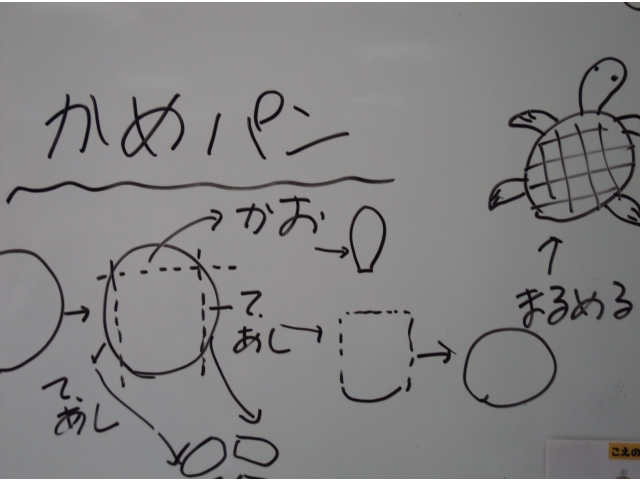 かめパン
かお
て、
あし
まるめる
て、
あし
こえの